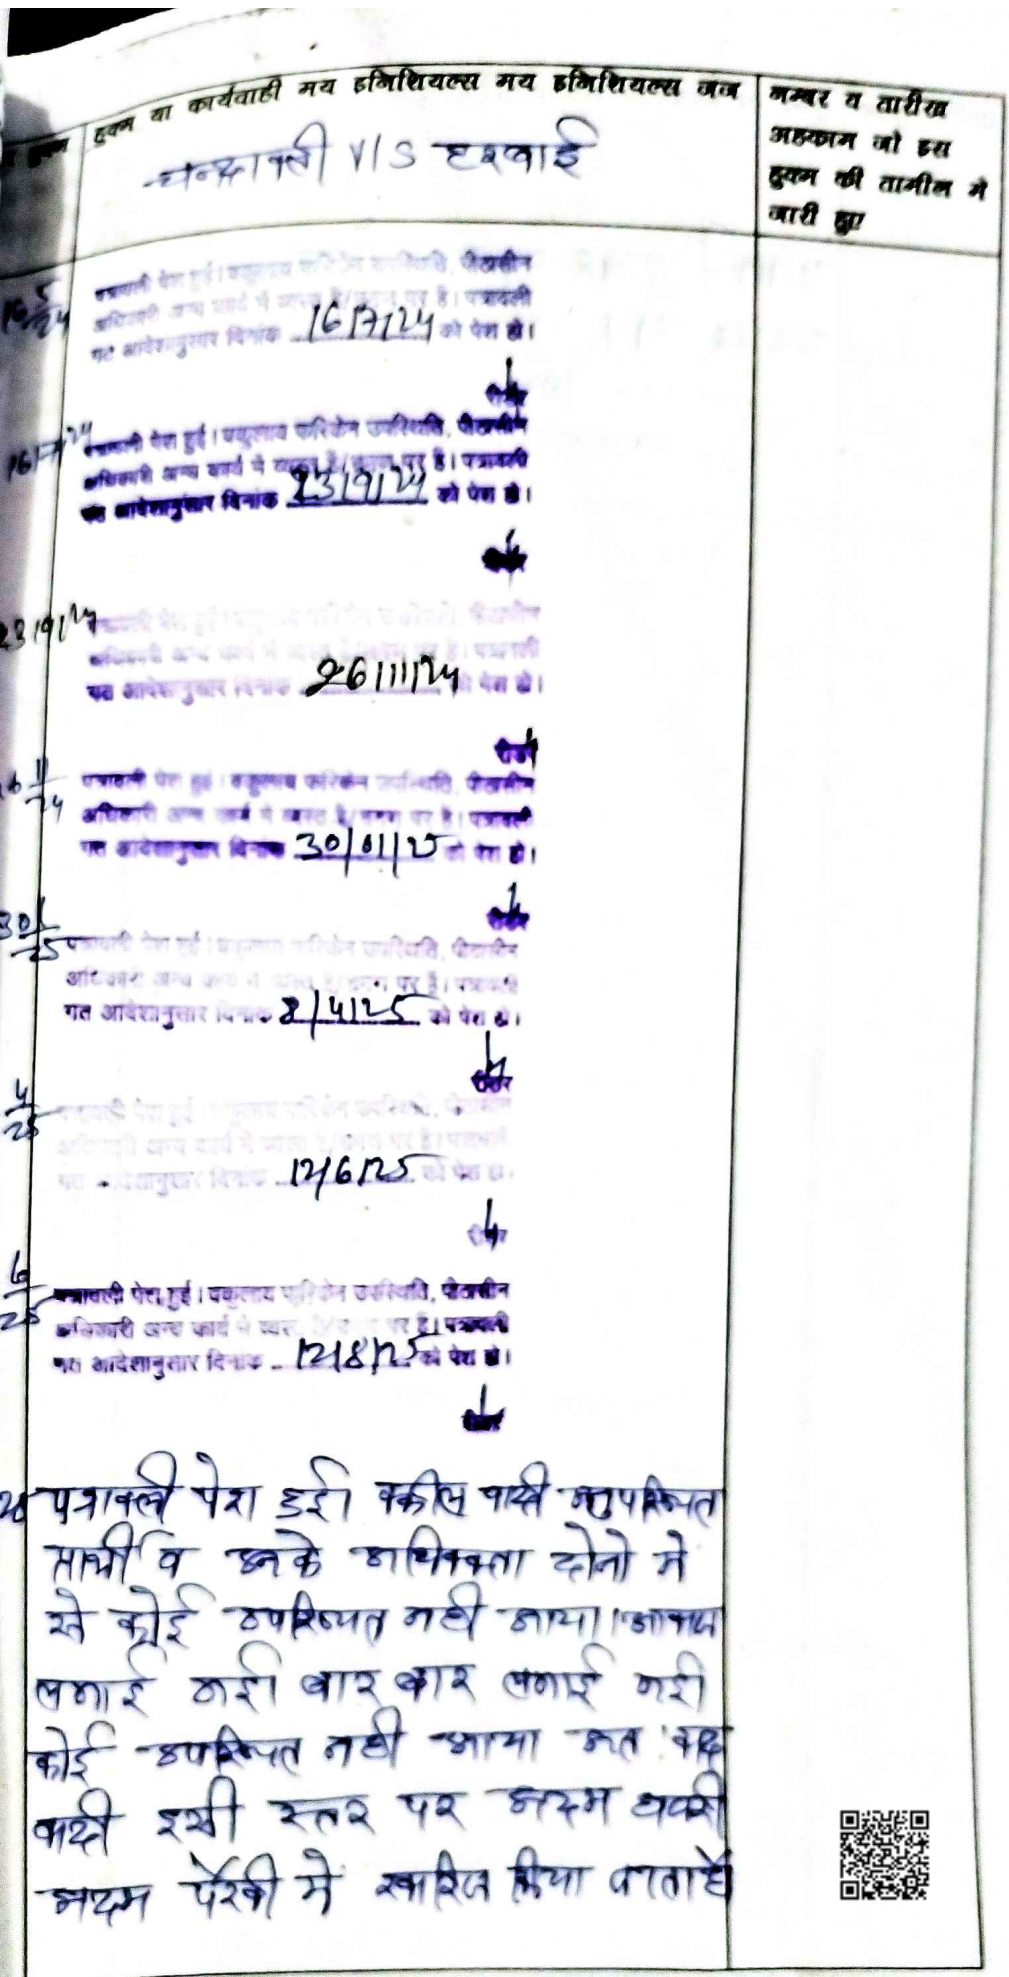 हुक्म या कार्यवाही मय इनिशियल्स मय इनिशियल्स जज
नम्बर व तारीख
अहकाम जो इस
हुक्म की तामील मे
जारी हुए
हुक्म
चन्द्रावली V/S हरबाई
16 5/24
पत्रावली पेश हुई। वकुलाय फरिकेन उपस्थिति, पीठासीन
अधिकारी अन्य कार्य में व्यस्त है/ पर है। पत्रावली
गत आदेशानुसार दिनांक 16/7/24 को पेश हो।
रीडर
16/7/24
पत्रावली पेश हुई। वकुलाय फरिकेन उपस्थिति, पीठासीन
अधिकारी अन्य कार्य में व्यस्त है/ पर है। पत्रावली
गत आदेशानुसार दिनांक 23/9/24 को पेश हो।
रीडर
23/9/24
पत्रावली पेश हुई। वकुलाय फरिकेन उपस्थिति, पीठासीन
अधिकारी अन्य कार्य में व्यस्त है/ पर है। पत्रावली
गत आदेशानुसार दिनांक 26/11/24 को पेश हो।
रीडर
11/24
पत्रावली पेश हुई। वकुलाय फरिकेन उपस्थिति, पीठासीन
अधिकारी अन्य कार्य में व्यस्त है/ पर है। पत्रावली
गत आदेशानुसार दिनांक 30/01/25 को पेश हो।
रीडर
30 1/25
पत्रावली पेश हुई। वकुलाय फरिकेन उपस्थिति, पीठासीन
अधिकारी अन्य कार्य में व्यस्त है/ पर है। पत्रावली
गत आदेशानुसार दिनांक 8/4/25 को पेश हो।
रीडर
4/25
पत्रावली पेश हुई। वकुलाय फरिकेन उपस्थिति, पीठासीन
अधिकारी अन्य कार्य में व्यस्त है/ पर है। पत्रावली
गत आदेशानुसार दिनांक 12/6/25 को पेश हो।
रीडर
6/25
पत्रावली पेश हुई। वकुलाय फरिकेन उपस्थिति, पीठासीन
अधिकारी अन्य कार्य में व्यस्त है/ पर है। पत्रावली
गत आदेशानुसार दिनांक 12/8/25 को पेश हो।
रीडर
पत्रावली पेश हुई। वकील वादी अनुपस्थित
व उनके अधिवक्ता दोनो मे
से कोई उपस्थित नही आया। आवाज
लगाई गई। बार बार लगाई गई।
कोई उपस्थित नही आया अत: वाद
वादी इसी स्तर पर अदम
अदम पैरवी मे खारिज किया जाता है